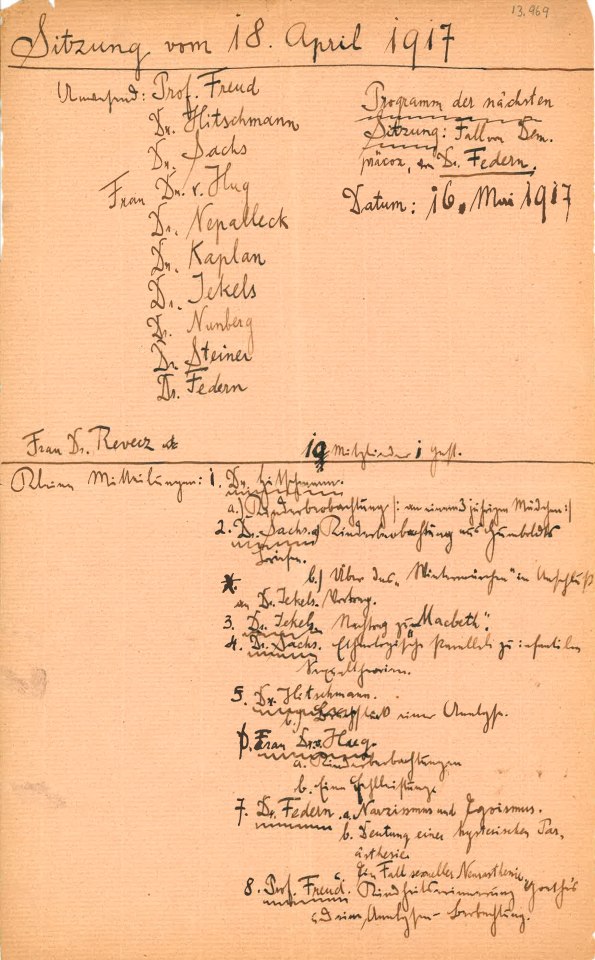 13,969
Sitzung vom 18. April 1917
Anwesend: Prof. Freud
Dr. Hitschmann
Dr. Sachs
Frau Dr. v. Hug
Dr. Nepalleck
Dr. Kaplan
Dr. Jekels
Dr. Nunberg
Dr. Steiner
Dr. Federn
Programm der nächsten
Sitzung: Fall von Dem.
präcox, Dr. Federn.
Datum: 16. Mai 1917
Frau Dr. Revecz
10 Mitglieder 1 Gast.
Kleine Mitteilungen: 1. Dr. Hitschmann.
a.) Kinderbeobachtung /: an einem 3 jährigen Mädchen:/
2. Dr. Sachs. a) Kinderbeobachtung aus Humboldts
Briefen.
b.) Über das „Wintermärchen" im Anschluß
an Dr. Jekels Vortrag.
3. Dr. Jekels Nachtrag zu „Macbeth".
4. Dr. Sachs. Ethnologische Parallele zu infantilen
Sexualtheorien.
5. Dr. Hitschmann.
b.) Bruchstück einer Analyse.
6. Frau Dr. v. Hug.
a. Kinderbeobachtungen
b. Eine Fehlleistung.
7. Dr. Federn. a. Narzissmus und Egoismus.
b. Deutung einer hysterischen Par-
ästhesie.
Ein Fall sexueller Neurasthenie.
8. Prof. Freud. Kindheitserinnerung Goethe's
und eine Analysen-Beobachtung.